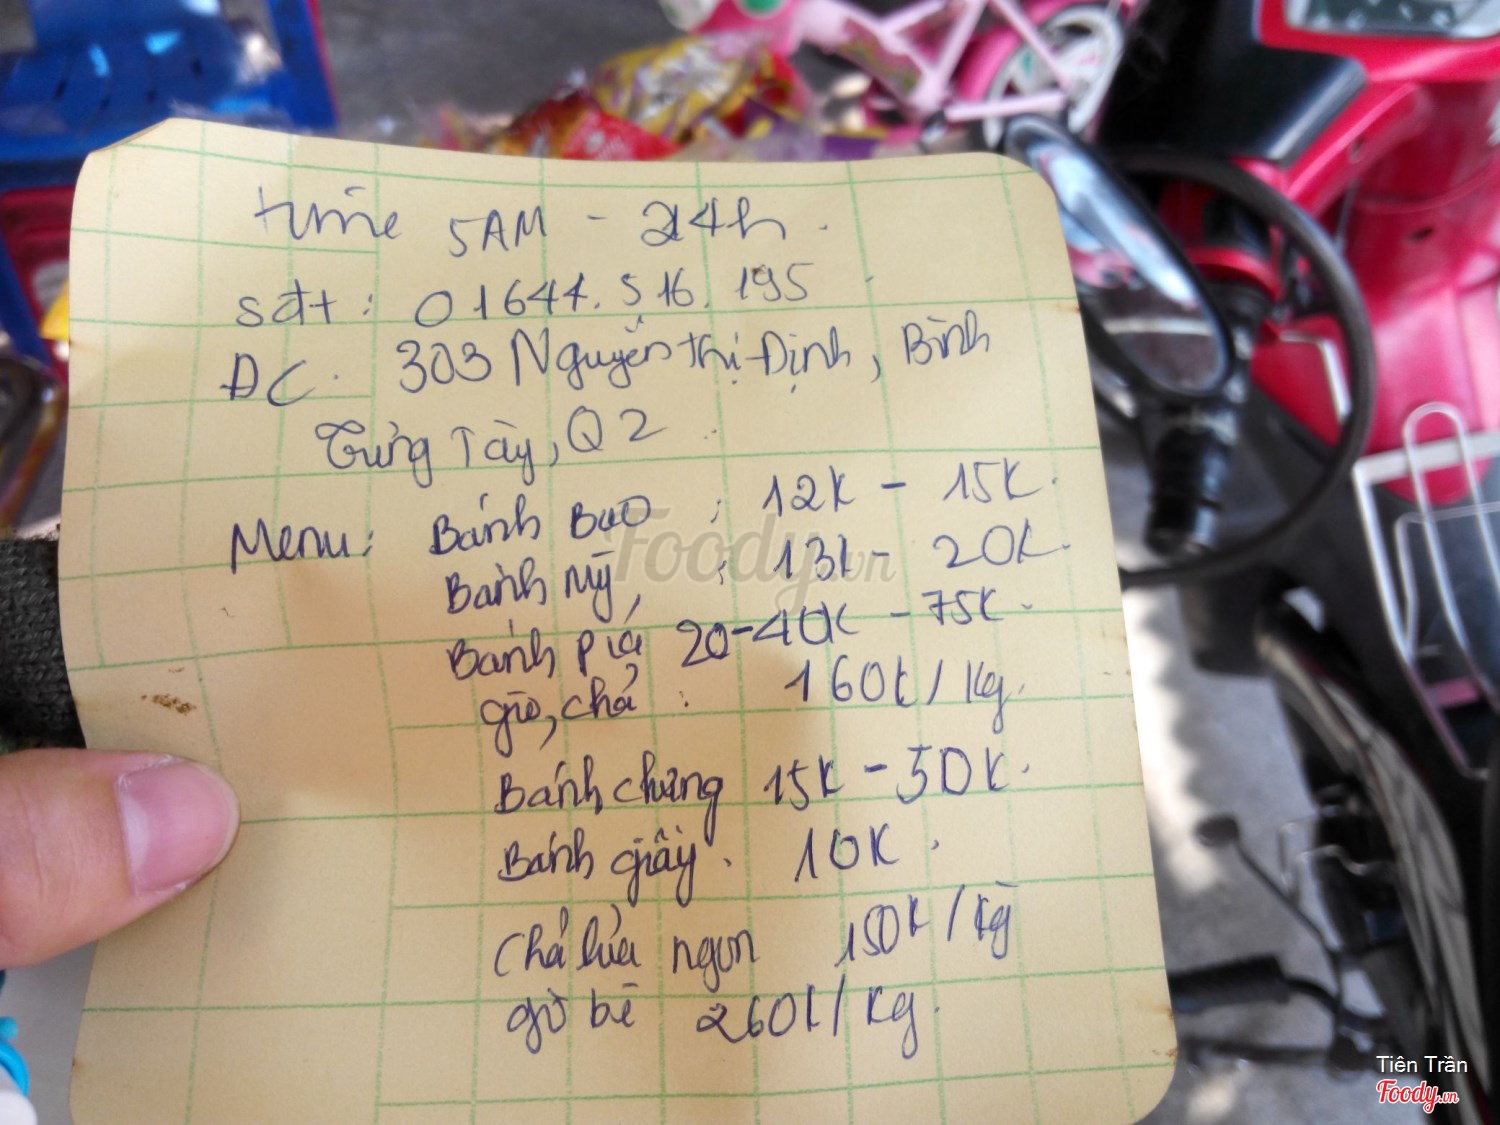 time 5AM - 24h.
sđt: 01644.516.195
ĐC. 303 Nguyễn Thị Định, Bình
Trưng Tây, Q2
Menu: Bánh Bao : 12K - 15K.
Bánh Mỹ, : 13K - 20K.
Bánh pía 20-40K - 75K.
giò, chả : 160K/Kg.
Bánh chưng 15K - 50K.
Bánh giầy. 10K.
Chả lụa ngon 150K/Kg
giò bê 260K/Kg.
Foody.vn
Tiên Trần
Foody.vn